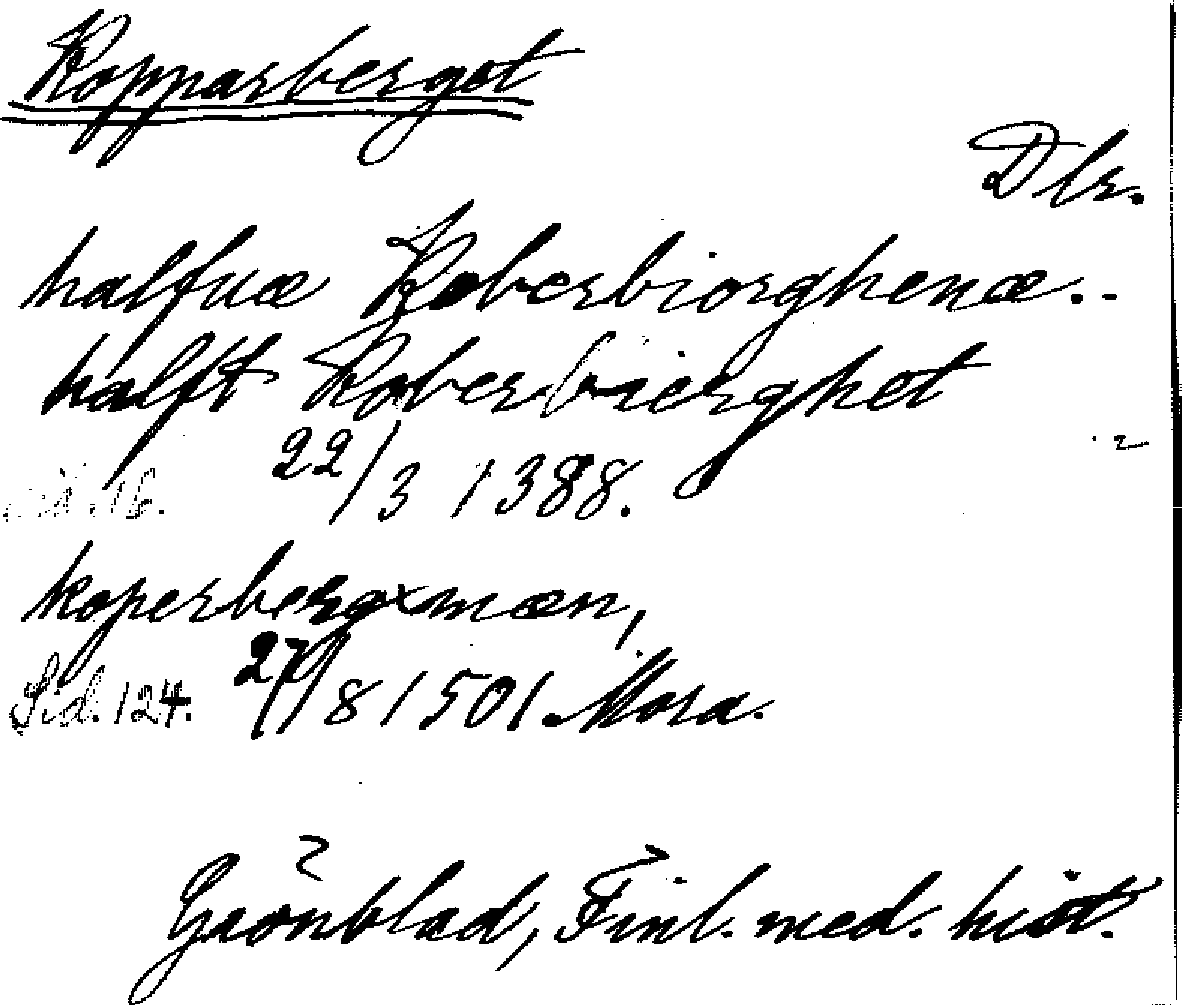 Kopparberget
Dlr.
halfuæ Koberbiorghenæ..
halft Koberbierghet
Sid. 16. 22/3 1388.
koperbergxmæn,
Sid. 124. 27/8 1501. Mora.
Grönblad, Finl. med. hist.